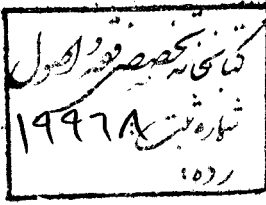 کتابخانه تخصصی فقه و اصول
شماره ثبت ۱۹۹۶۸
رده: